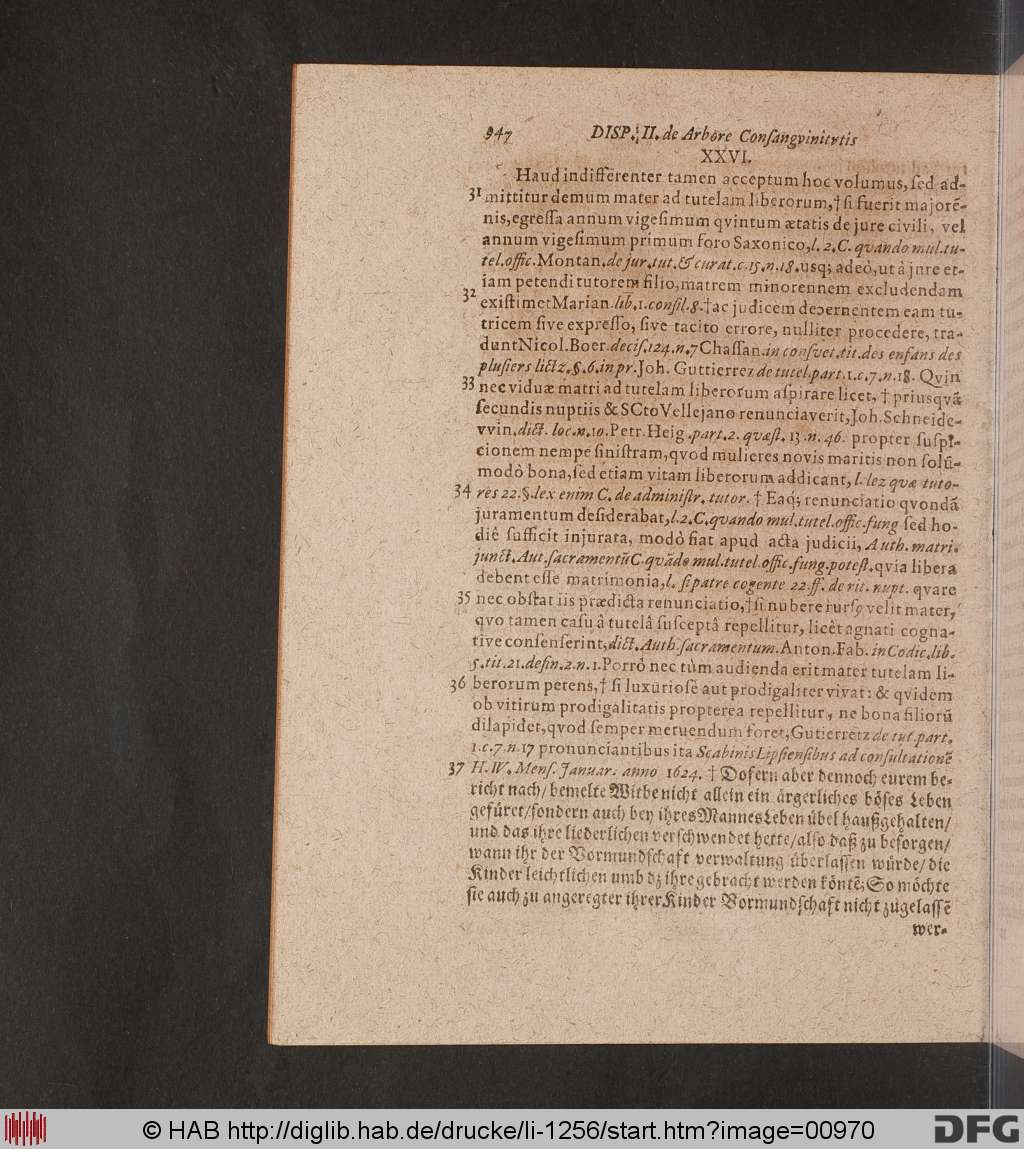 947 DISP. II. de Arbore Consangvinitvtis
XXVI.
Haud indifferenter tamen acceptum hoc volumus, sed ad-
31 mittitur demum mater ad tutelam liberorum,† si fuerit majorē-
nis, egressa annum vigesimum qvintum ætatis de jure civili, vel
annum vigesimum primum foro Saxonico, l. 2. C. quando mul. tu-
tel. offic. Montan. de jur. tut. & curat. c. 15. n. 18. usq; adeò, ut â jure et-
iam petendi tutorem filio, matrem minorennem excludendam
32 existimet Marian. lib. 1. consil. 8. † ac judicem decernentem eam tu-
tricem sive expresso, sive tacito errore, nulliter procedere, tra-
dunt Nicol. Boer. decis. 124. n. 7 Chassan. in consvet. tit. des enfans des
plusiers lictz. §. 6. in pr. Joh. Guttierrez de tutel. part. 1. c. 7. n. 18. Qvin
33 nec viduæ matri ad tutelam liberorum aspirare licet, † priusqvā
secundis nuptiis & SCto Vellejano renunciaverit, Joh. Schneide-
vvin. dict. loc. n. 10. Petr. Heig. part. 2. quæst. 13. n. 46. propter suspi-
cionem nempe sinistram, qvod mulieres novis maritis non solū-
modò bona, sed etiam vitam liberorum addicant, l. lex quæ tuto-
34 res 22. §. lex enim C. de administr. tutor. † Eaq; renunciatio qvondā
juramentum desiderabat, l. 2. C. quando mul. tutel. offic. fung sed ho-
diê sufficit injurata, modò fiat apud acta judicii, Auth. matri.
junct. Aut. sacramentū C. quādo mul. tutel. offic. fung. potest. qvia libera
debent esse matrimonia, l. si patre cogente 22. ff. de rit. nupt. qvare
35 nec obstat iis prædicta renunciatio, † si nubere rursq velit mater,
qvo tamen casu â tutelâ susceptâ repellitur, licèt agnati cogna-
tive consenserint, dict. Auth. sacramentum. Anton. Fab. in Codic. lib.
5. tit. 21. defin. 2. n. 1. Porrò nec tùm audienda erit mater tutelam li-
36 berorum petens, † si luxuriosè aut prodigaliter vivat: & qvidem
ob vitirum prodigalitatis propterea repellitur, ne bona filiorū
dilapidet, qvod semper metuendum foret, Gutierretz de tut. part.
1. c. 7. n. 17 pronunciantibus ita Scabinis Lipsiensibus ad consultationē
37 H. W. Mens. Januar. anno 1624. † Dofern aber dennoch eurem be-
richt nach/ bemelte Witbe nicht allein ein ärgerliches böses Leben
gefüret/ sondern auch bey ihres Mannes Leben übel haußgehalten/
und das ihre liederlichen verschwendet hette/ also daß zu besorgen/
wann ihr der Vormundschaft verwaltung überlassen würde/ die
Kinder leichtlichen umb dz ihre gebracht werden köntē; So möchte
sie auch zu angeregter ihrer Kinder Vormundschaft nicht zugelassē
wer-
© HAB http://diglib.hab.de/drucke/li-1256/start.htm?image=00970
DFG